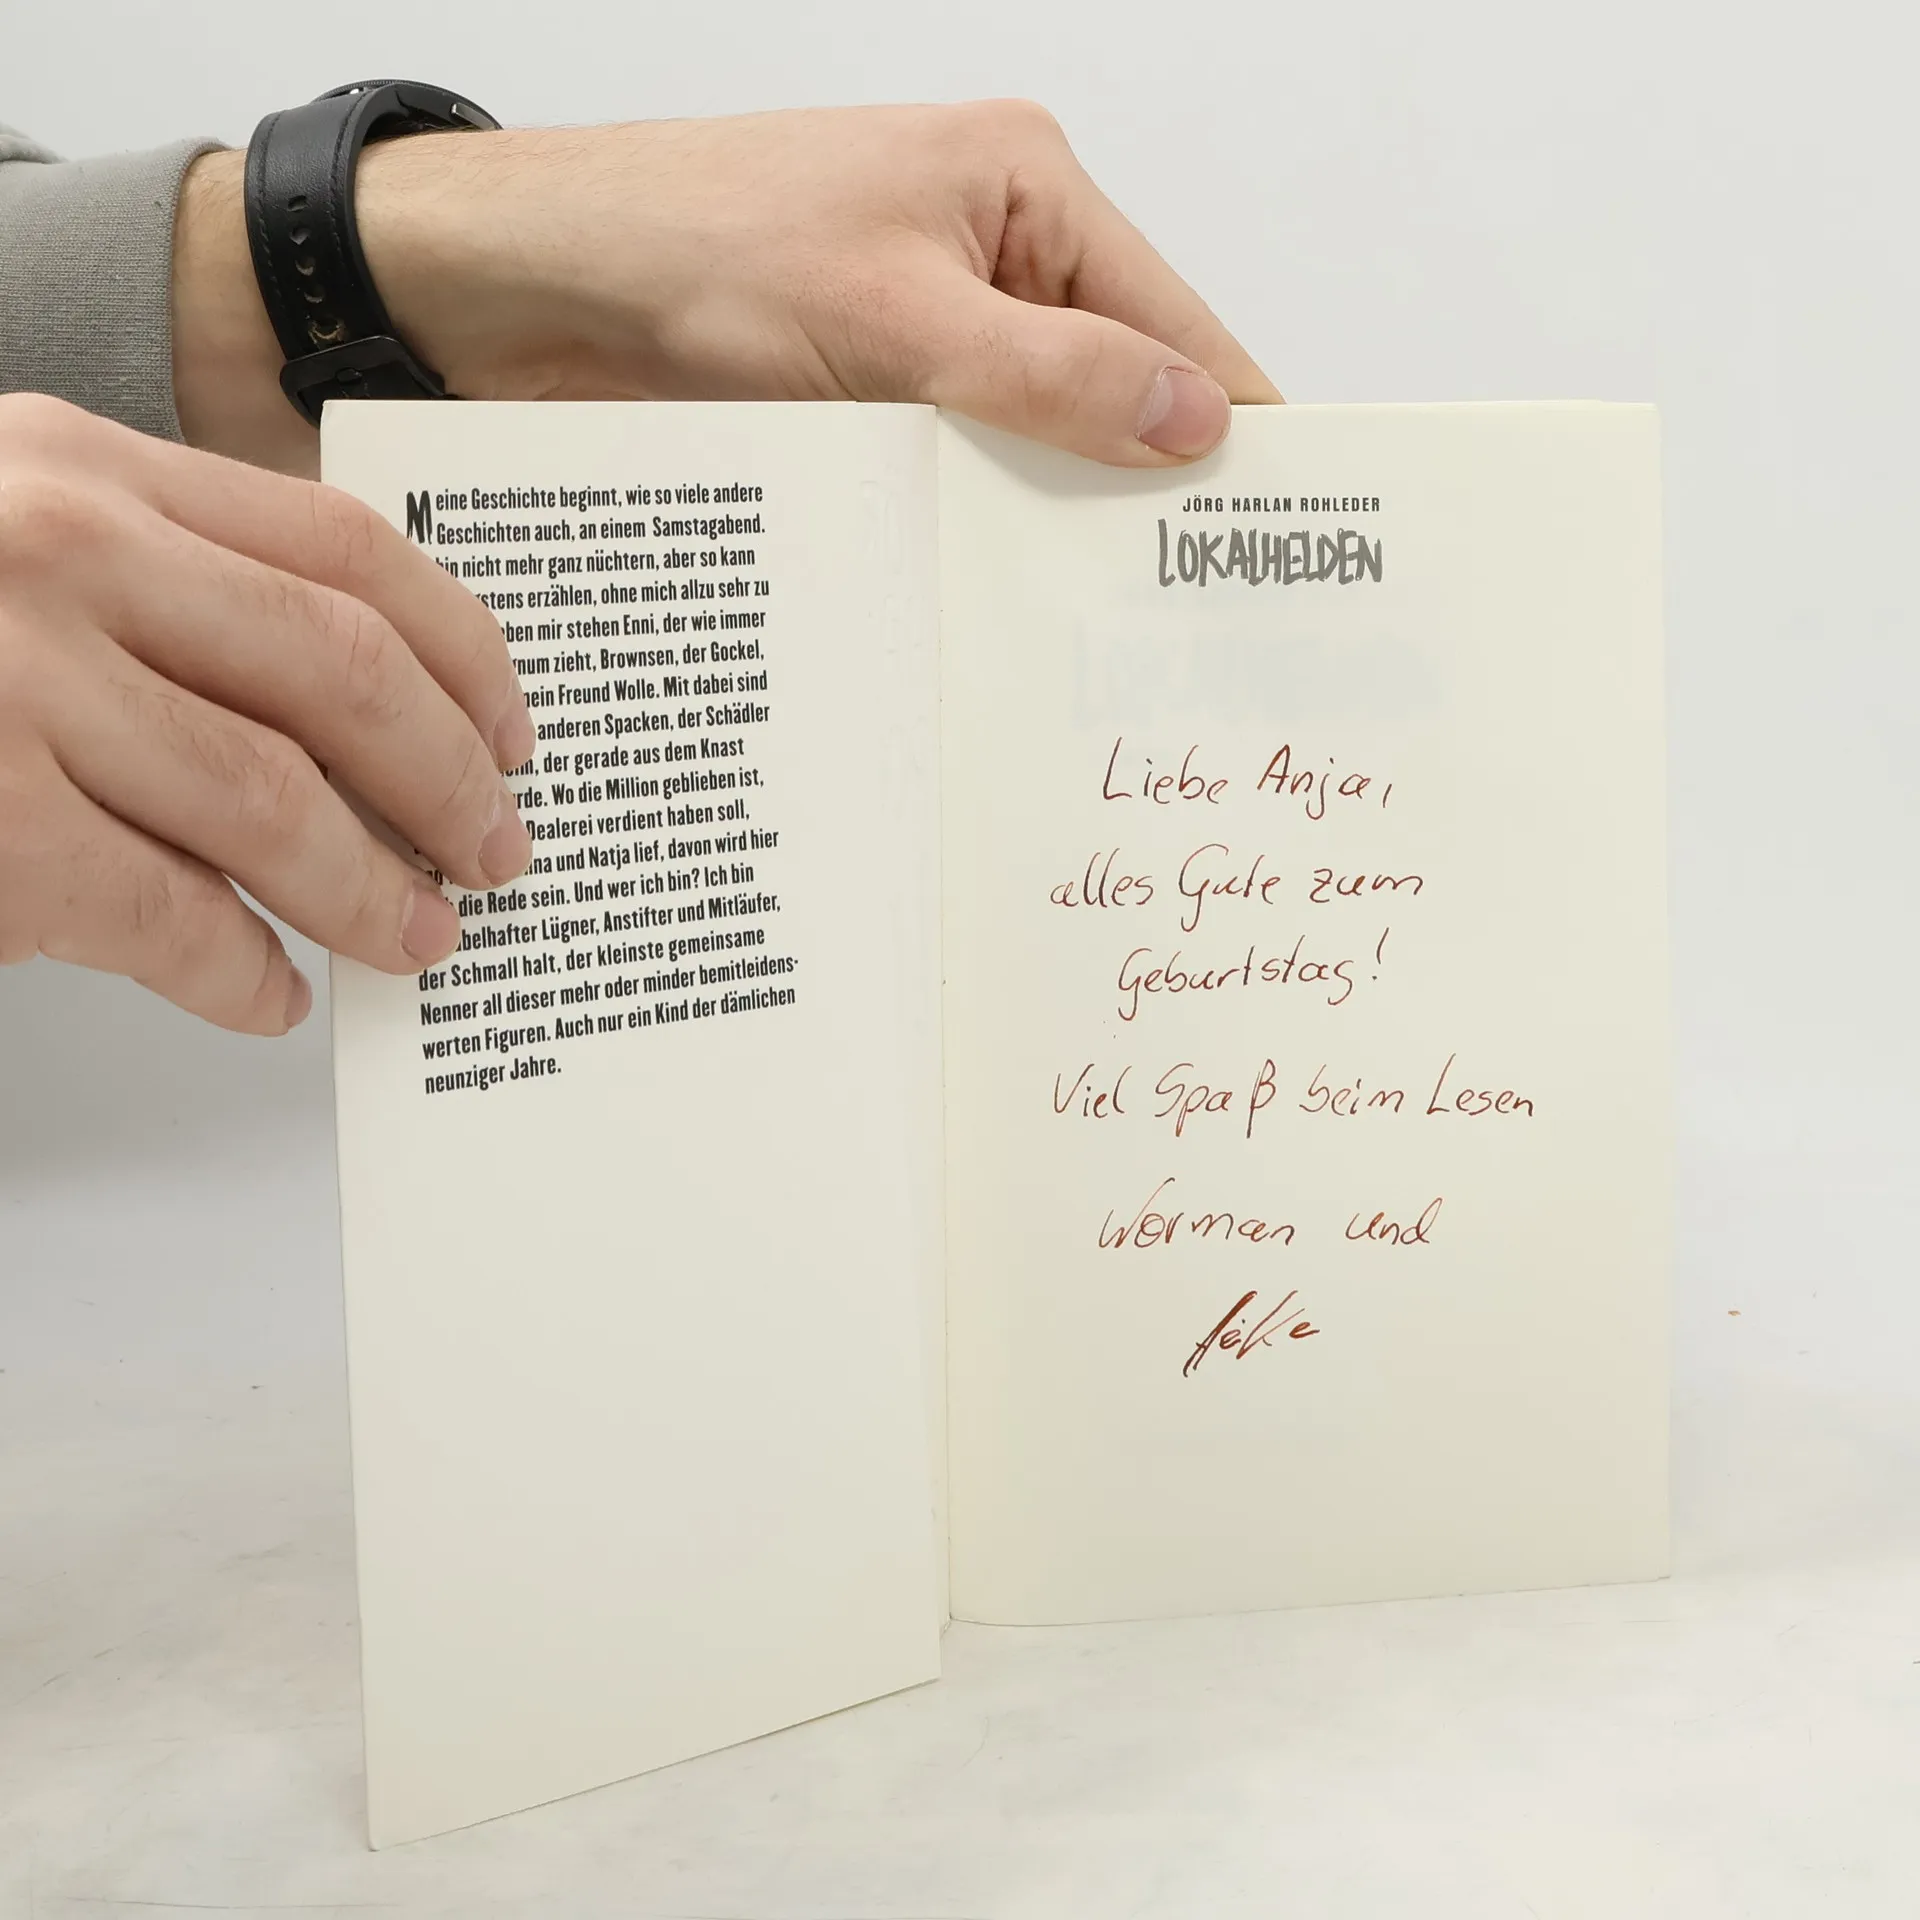 Meine Geschichte beginnt, wie so viele andere
Geschichten auch, an einem Samstagabend.
bin nicht mehr ganz nüchtern, aber so kann
stens erzählen, ohne mich allzu sehr zu
ben mir stehen Enni, der wie immer
num zieht, Brownsen, der Gockel,
mein Freund Wolle. Mit dabei sind
anderen Spacken, der Schädler
der gerade aus dem Knast
rde. Wo die Million geblieben ist,
Dealerei verdient haben soll,
na und Natja lief, davon wird hier
die Rede sein. Und wer ich bin? Ich bin
belhafter Lügner, Anstifter und Mitläufer,
der Schmall halt, der kleinste gemeinsame
Nenner all dieser mehr oder minder bemitleidens-
werten Figuren. Auch nur ein Kind der dämlichen
neunziger Jahre.
JÖRG HARLAN ROHLEDER
LOKALHELDEN
Liebe Anja,
alles Gute zum
Geburtstag!
Viel Spaß beim Lesen
Norman und